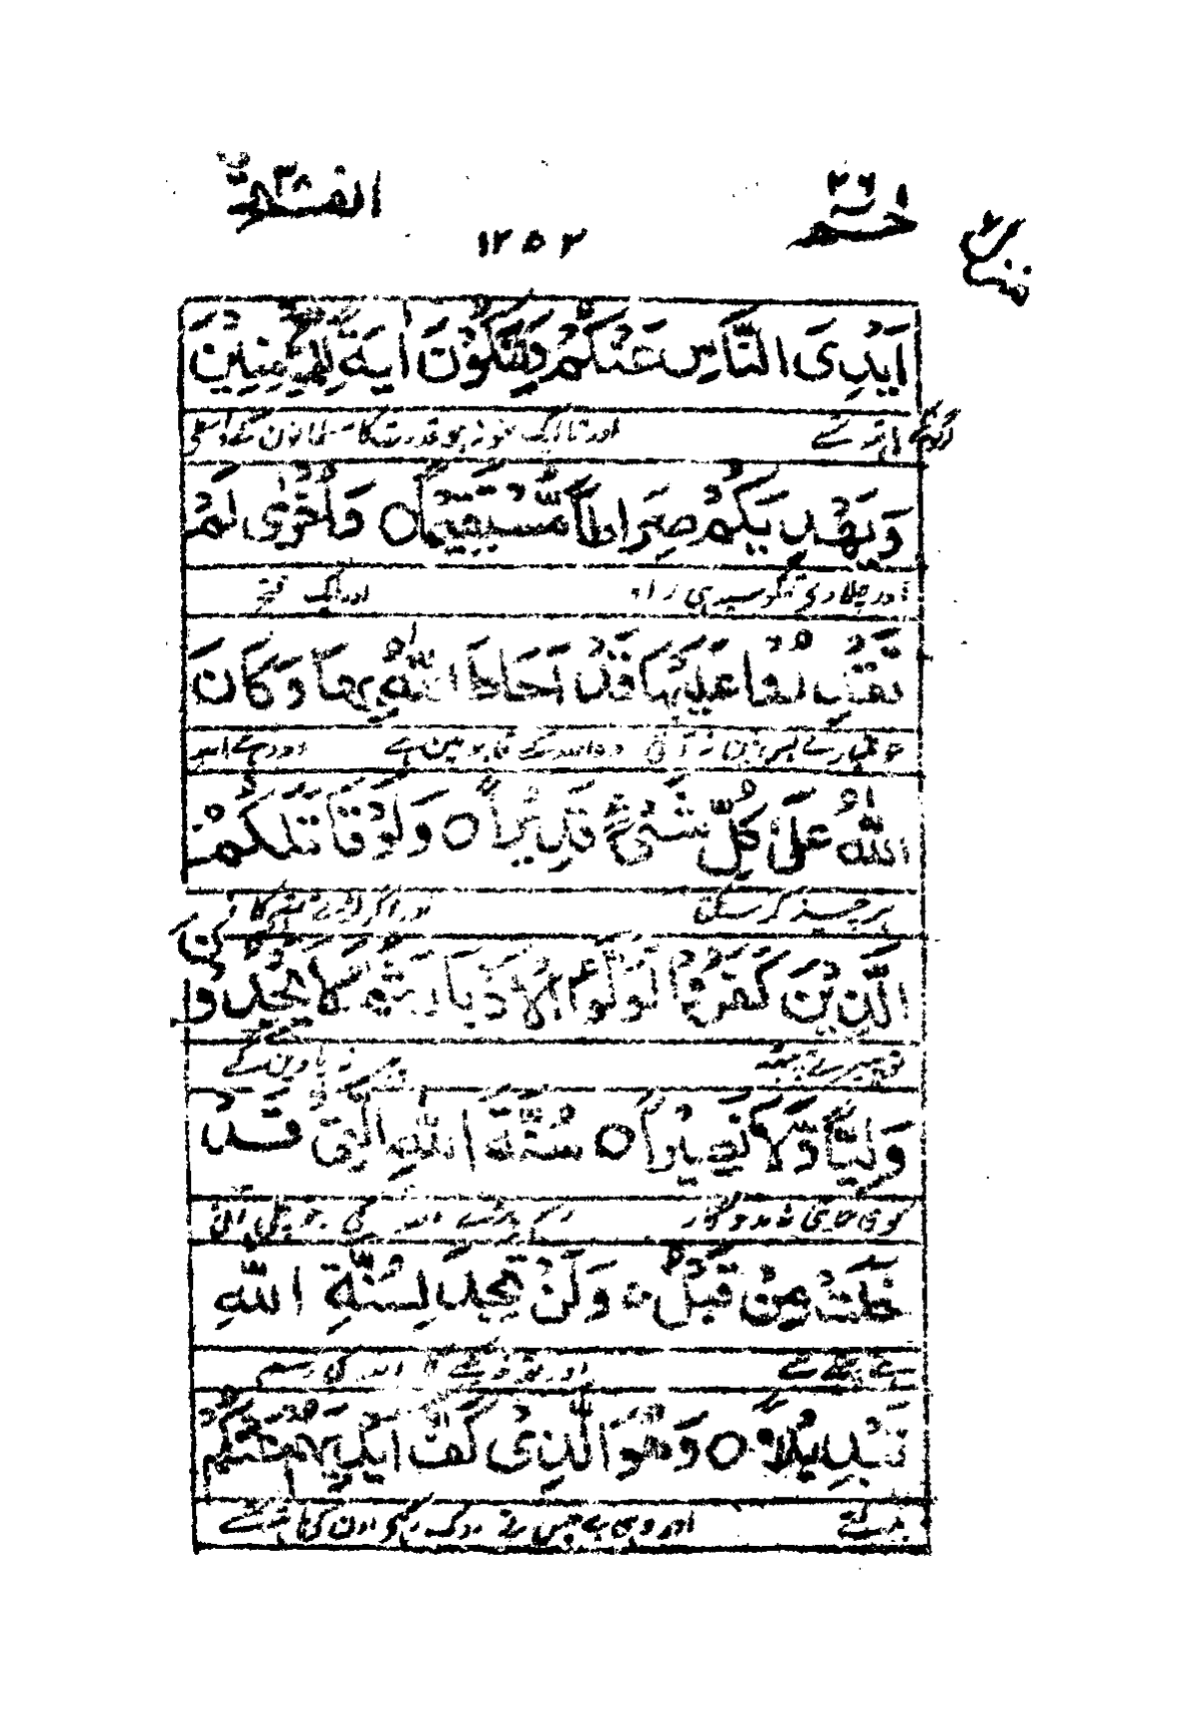 حٰم ٢٦
الفتح ٤٨
١٢٥٣
منزل ٦
اَيْدِىَ النَّاسِ عَنْكُمْ وَلِتَكُوْنَ اٰيَةً لِّلْمُؤْمِنِيْنَ
لوگونکے ہاتھ تمسے اور تا ایک نمونہ ہو قدرت کا مسلمانون کے واسطے
وَيَهْدِيَكُمْ صِرَاطًا مُّسْتَقِيْمًا ○ وَّاُخْرٰى لَمْ
اور چلاوے تمکو سیدہی راہ اور ایک فتح
تَقْدِرُوْا عَلَيْهَا قَدْ اَحَاطَ اللّٰهُ بِهَا وَكَانَ
جو تمہارے بس مین نہ آئی وہ اللہ کے قابو مین ہے اور ہے اللہ
اللّٰهُ عَلٰى كُلِّ شَىْءٍ قَدِيْرًا ○ وَلَوْ قَاتَلَكُمُ
ہر چیز کر سکتا اور اگر لڑتے تمسے کافر
الَّذِيْنَ كَفَرُوْا لَوَلَّوُا الْاَدْبَارَ ثُمَّ لَا يَجِدُوْنَ
تو پھیرتے پیٹھ پھر نہ پاوینگے
وَلِيًّا وَّلَا نَصِيْرًا ○ سُنَّةَ اللّٰهِ الَّتِىْ قَدْ
کوئی حمایتی نہ مددگار رسم پڑی اللہ کی جو چلی آتی
خَلَتْ مِنْ قَبْلُ وَلَنْ تَجِدَ لِسُنَّةِ اللّٰهِ
ہے پہلے سے اور تو نہ دیکھے گا اللہ کی رسم
تَبْدِيْلًا ○ وَهُوَ الَّذِىْ كَفَّ اَيْدِيَهُمْ عَنْكُمْ
بدلتے اور وہی ہے جس نے روک رکھے اون کے ہاتھ تمسے